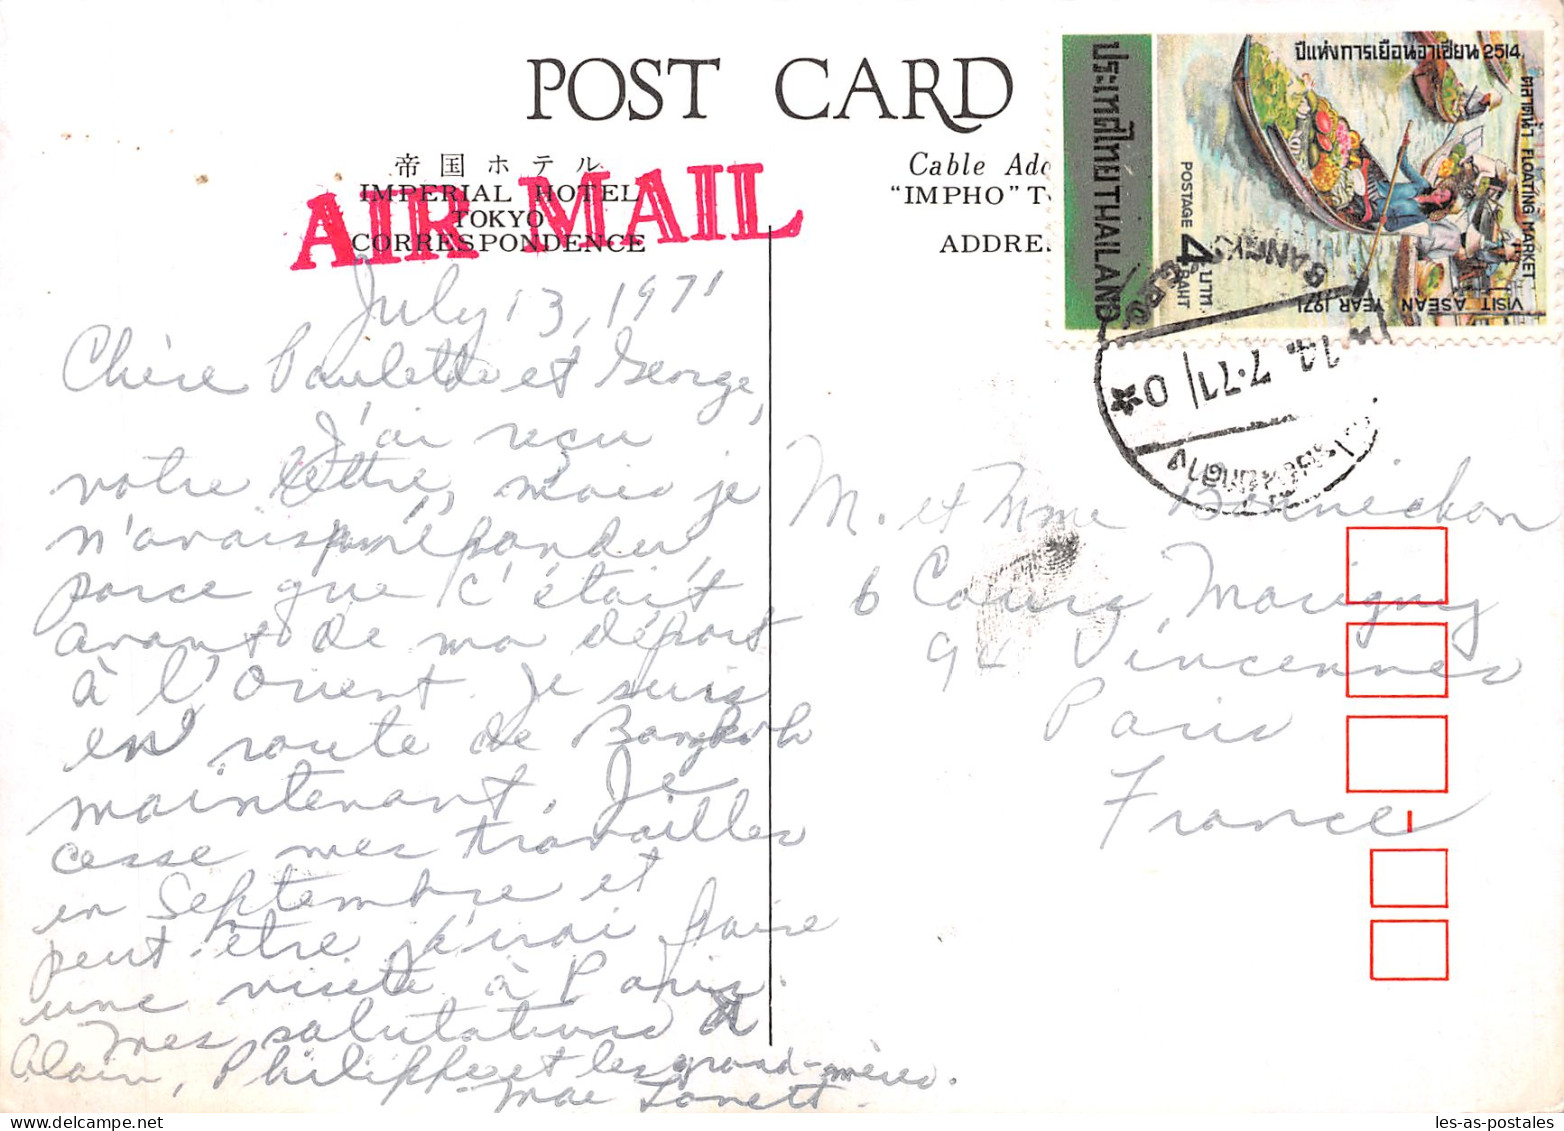 POST CARD
帝国ホテル
IMPERIAL HOTEL
TOKYO
CORRESPONDENCE
AIR MAIL
Cable Add
"IMPHO" T
ADDRE
ประเทศไทย THAILAND
ปีแห่งการเยือนอาเซียน 2514
ตลาดน้ำ FLOATING MARKET
VISIT ASEAN YEAR 1971
POSTAGE
4
บาท
BAHT
BANGK
G.P.O.
14.7.71
July 13, 1971
Chère Paulette et George,
J'ai reçu
votre lettre, mais je
n'avais pas répondu,
parce que c'était
avant de ma départ
à l'Orient. Je suis
en route de Bangkok
maintenant. Je
cesse mes travailles
en Septembre et
peut être j'irai faire
une visite à Paris.
Mes salutations à
Alain, Philippe et les grand-mères.
Mae
M. et Mme Bonnichon
6 Cours Marigny
94 Vincennes
Paris
France
les-as-postales